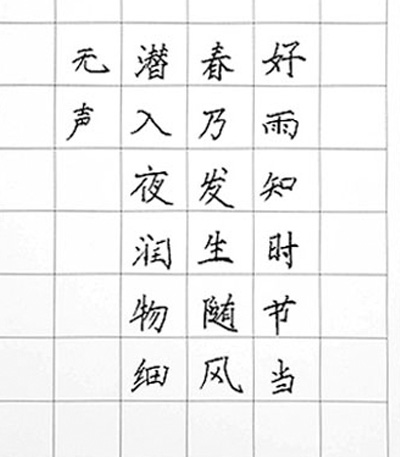 好雨知时节当
春乃发生随风
潜入夜润物细
无声